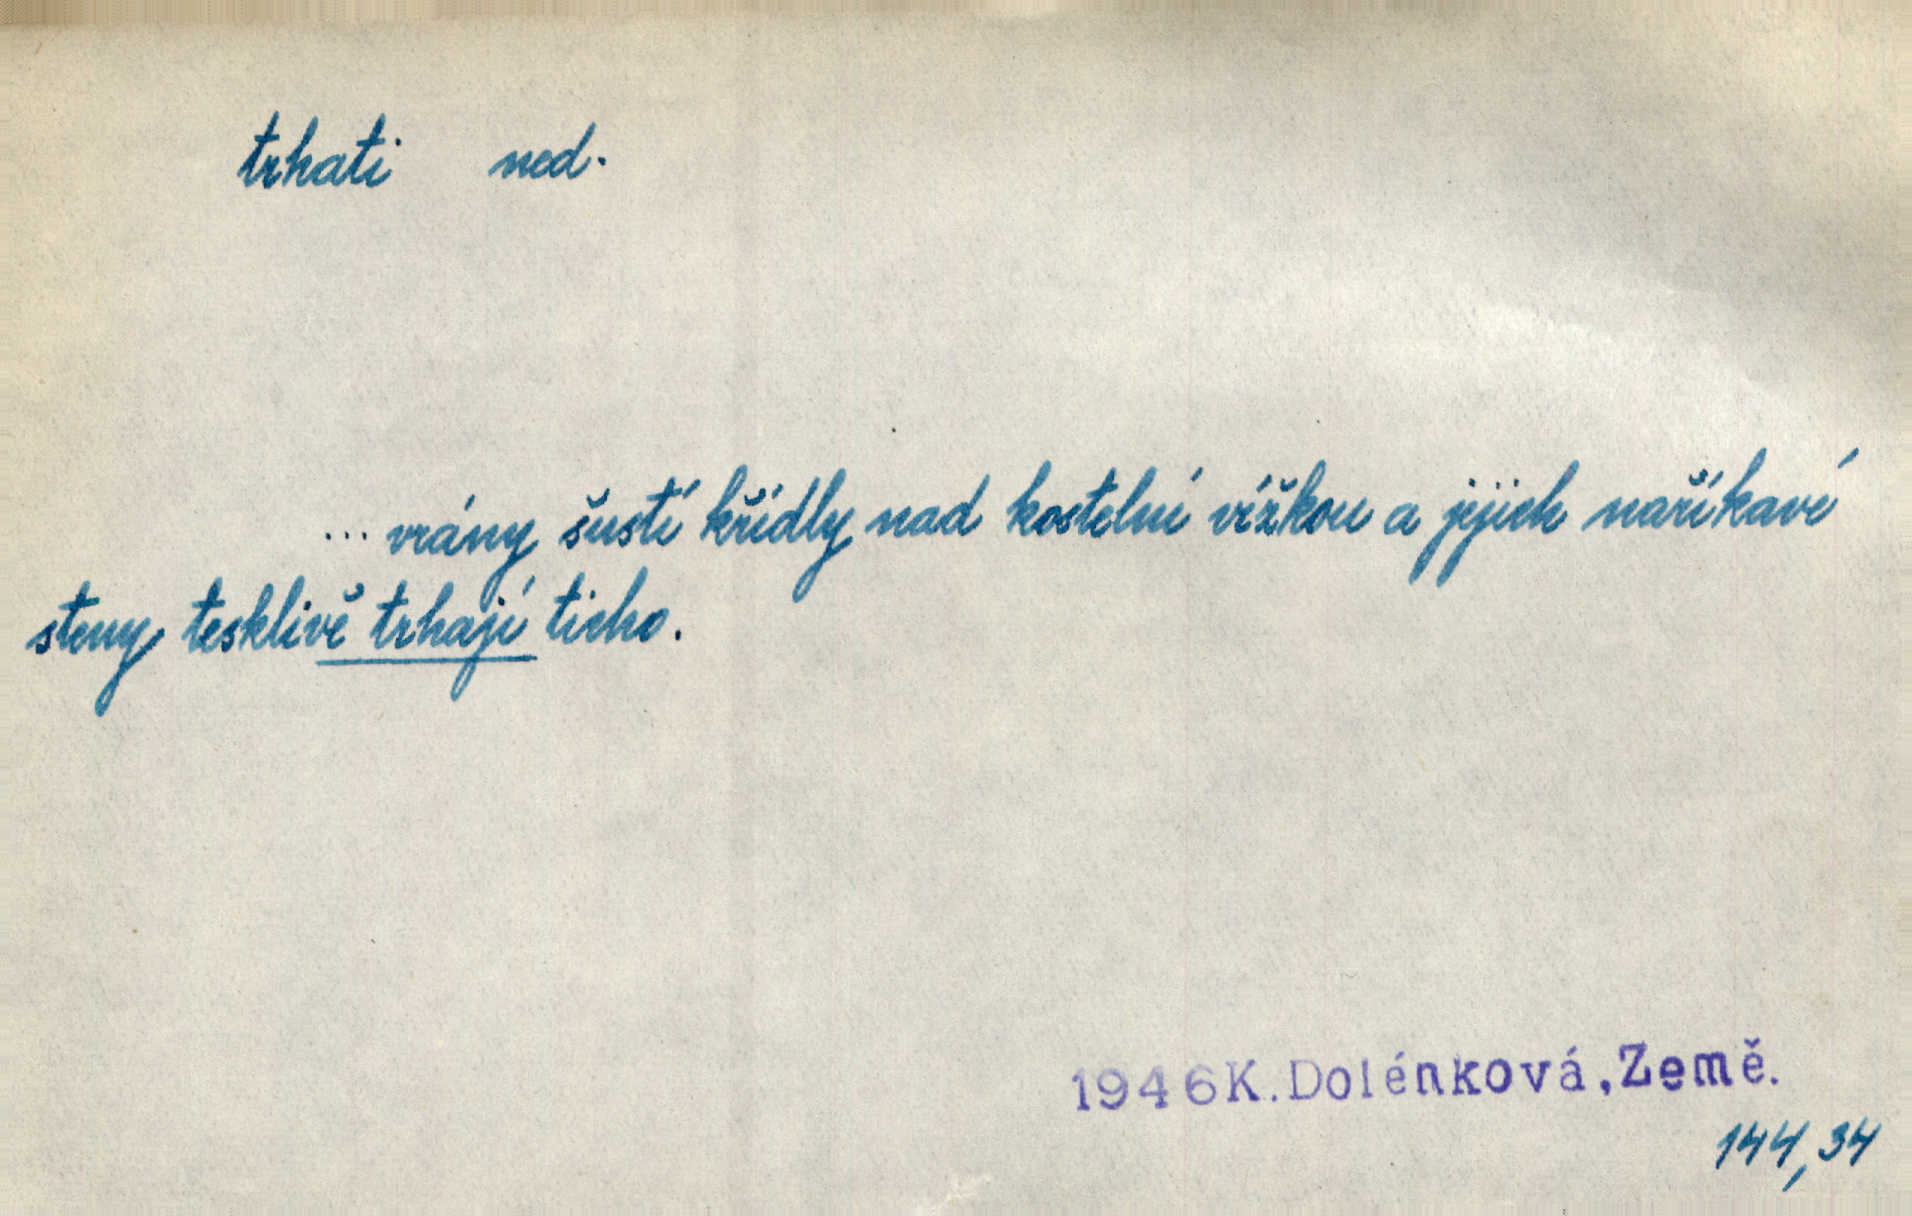 trhati ned.
... vrány šustí křídly nad kostelní vížkou a jejich naříkavé
steny tesklivě trhají ticho.
1946K.Dolénková,Země.
144,34